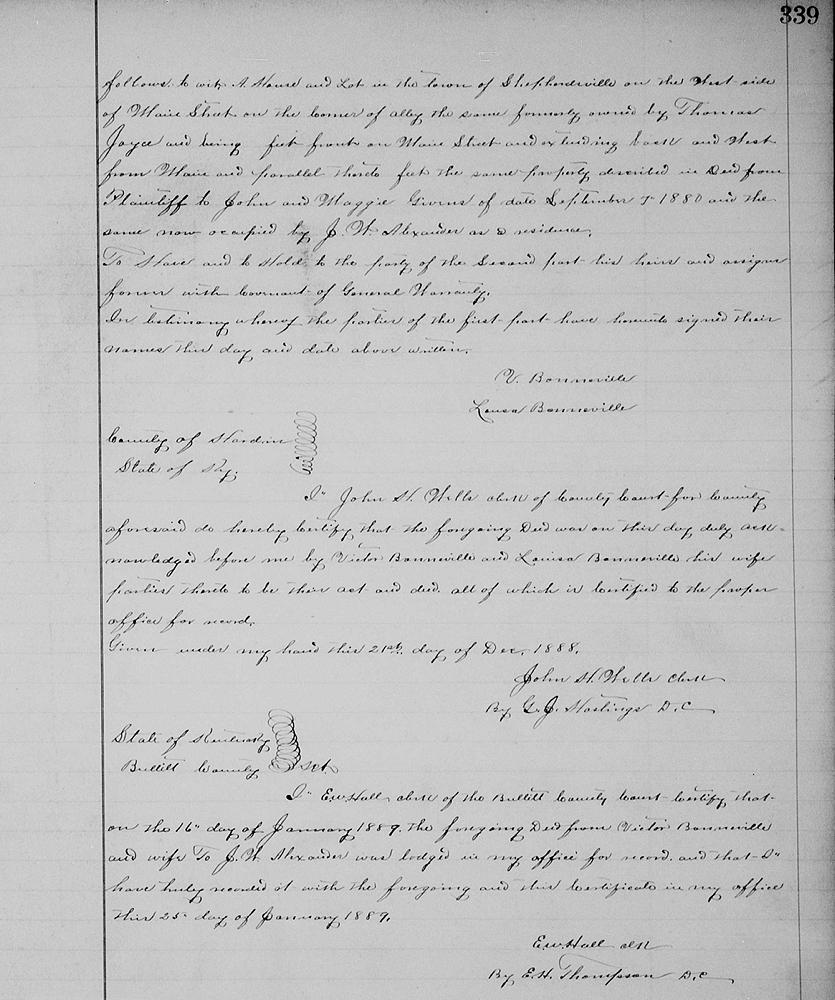 339
follows to wit, A House and Lot in the town of Shepherdsville on the West side
of Main Street on the Corner of alley the same formerly owned by Thomas
Joyce and being feet front on Main Street and extending back and West
from Main and parallel thereto feet the same property described in Deed from
Plaintiff to John and Maggie Givens of date September 7" 1880 and the
same now occupied by J. W. Alexander as a residence,
To Have and to Hold to the party of the Second part his heirs and assigns
forever with Covenant of General Warranty.
In testimony whereof the parties of the first part have hereunto signed their
names this day and date above written.
V. Bonneville
Louisa Bonneville
County of Hardin
State of Ky.
I" John H. Wells clerk of County Court for County
aforesaid do hereby Certify that the foregoing Deed was on this day duly ack-
nowledged before me by Victor Bonneville and Louisa Bonneville his wife
parties thereto to be their act and deed. all of which is Certified to the proper
office for record.
Given under my hand this 21st. day of Dec. 1888.
John H. Wells Clerk
By G. J. Hastings D.C
State of Kentucky
Bullitt County Sct.
I" E.W. Hall clerk of the Bullitt County Court Certify that
on the 16" day of January 1889. the foregoing Deed from Victor Bonneville
and wife To J. W. Alexander was lodged in my office for record. and that I"
have truly recorded it with the foregoing and this Certificate in my office
this 25" day of January 1889.
E.W. Hall clk
By E.H. Thompson D.C